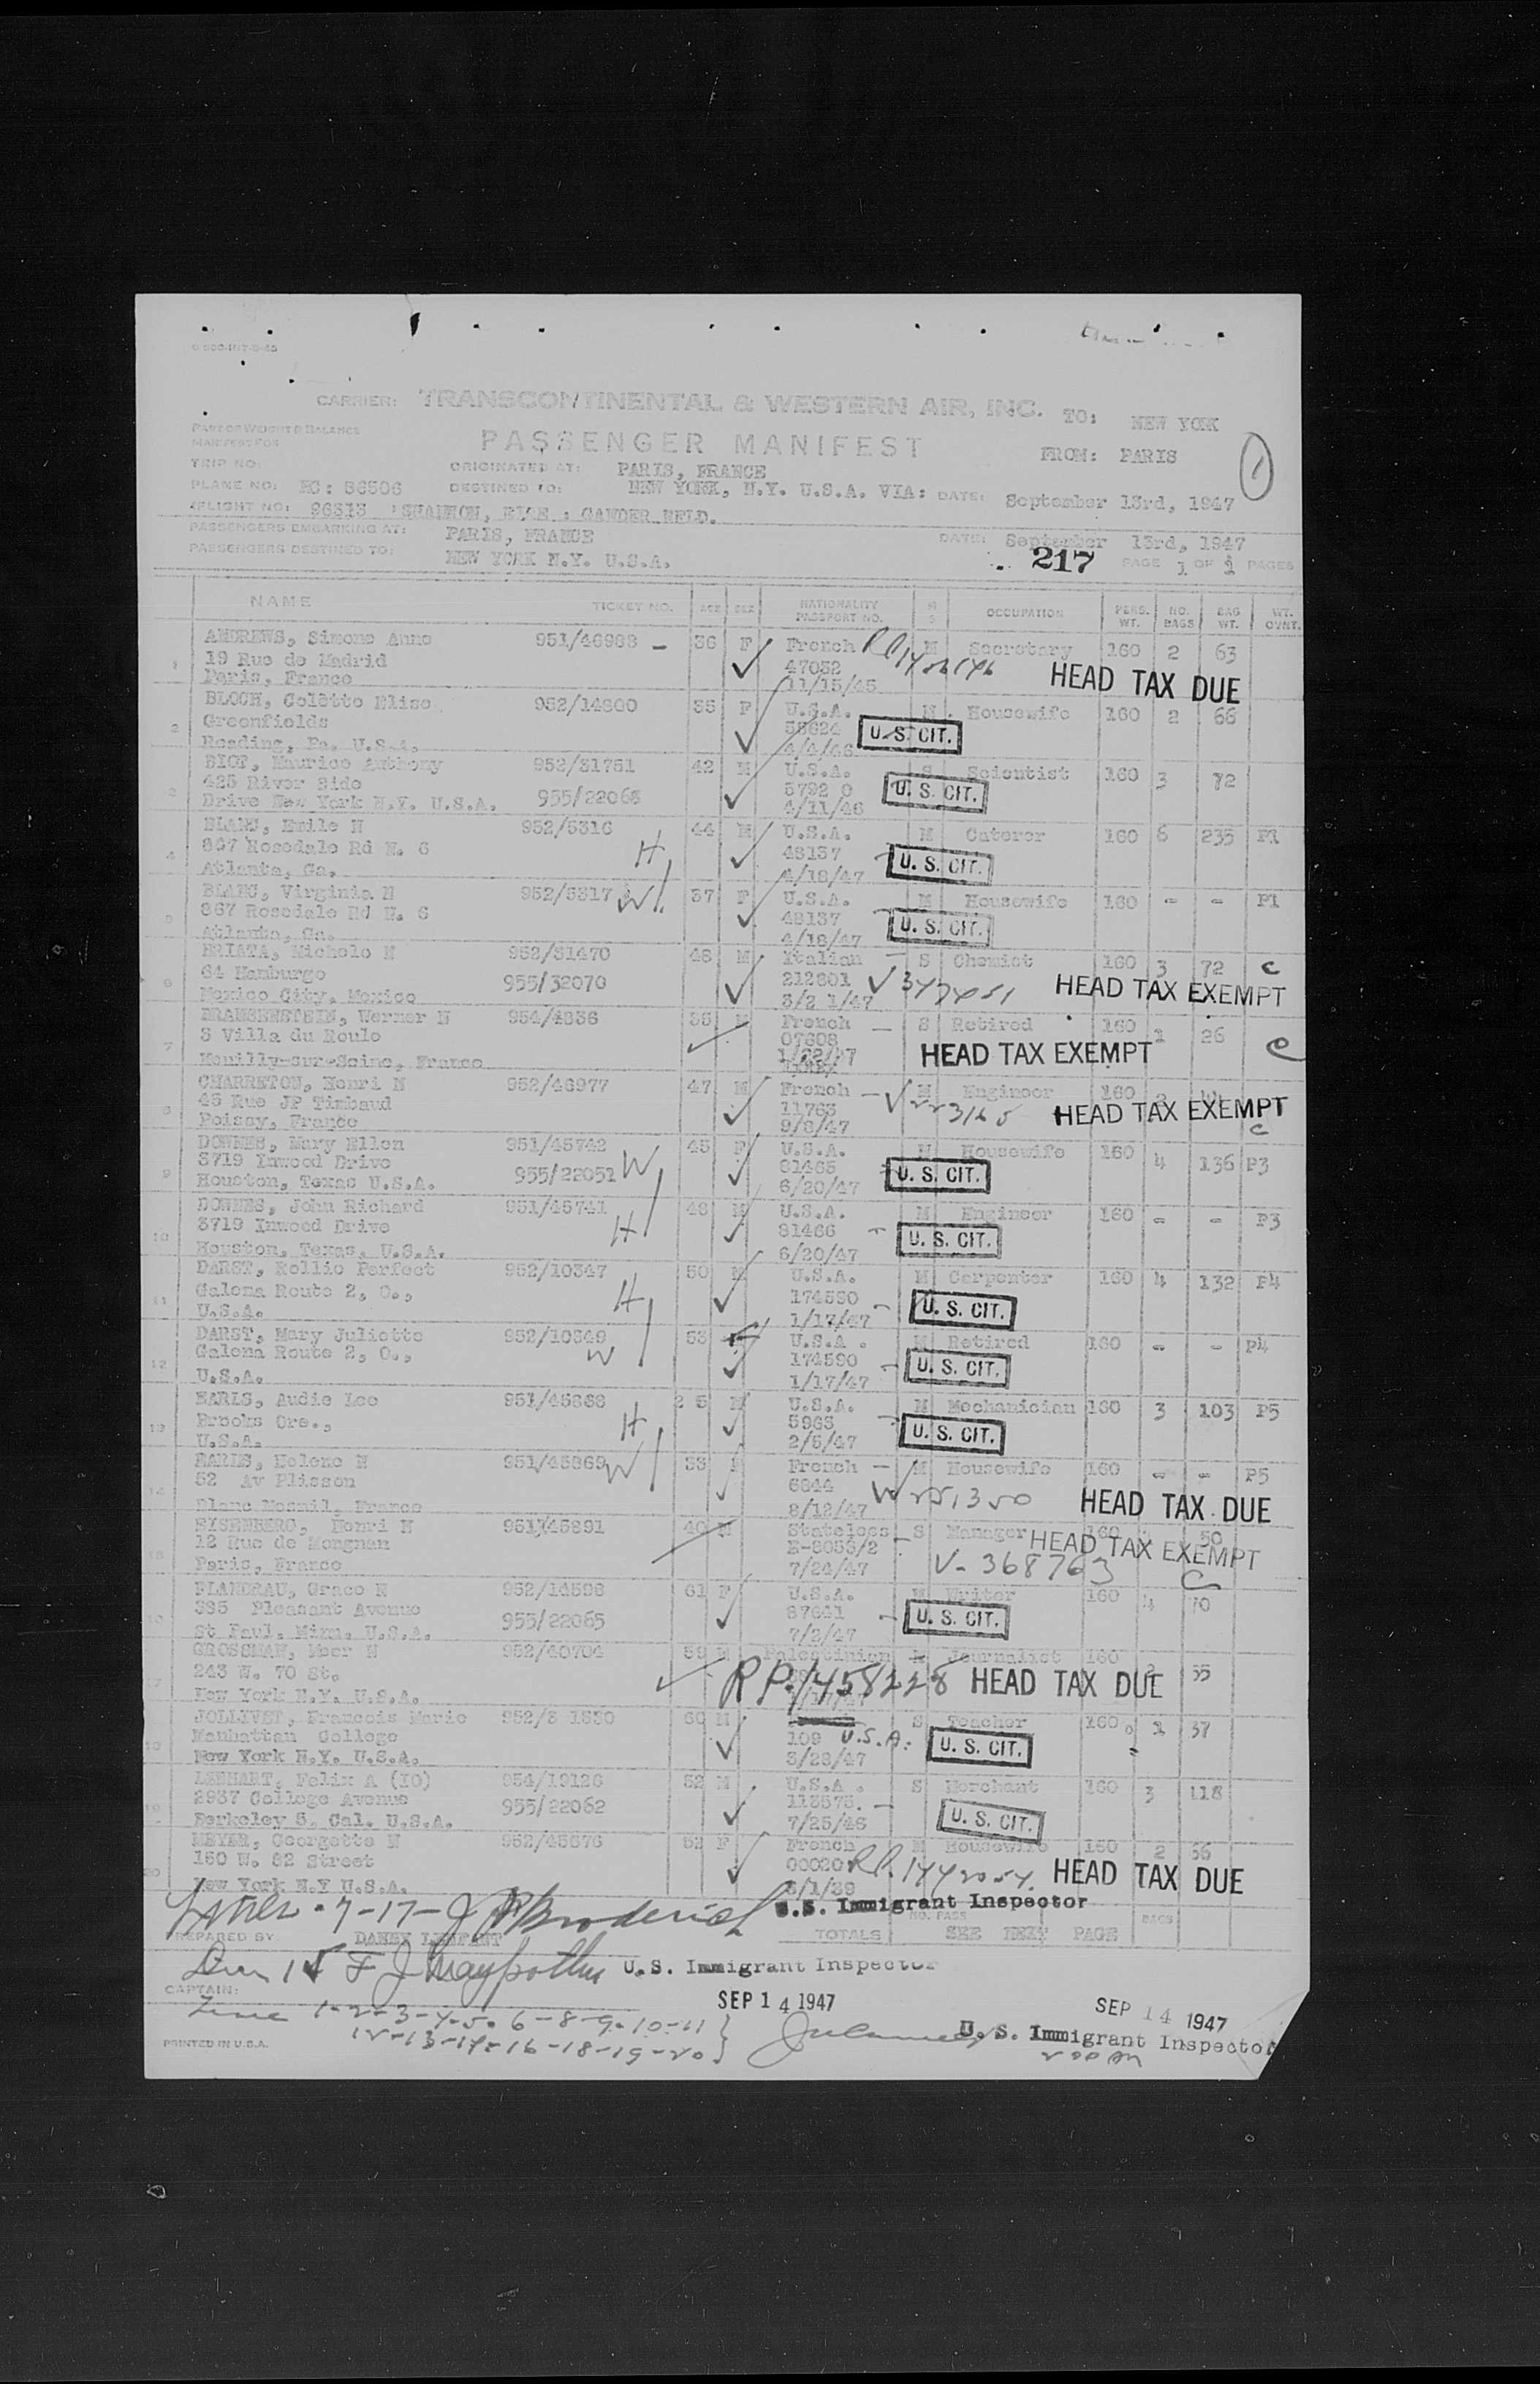 CARRIER: TRANSCONTINENTAL & WESTERN AIR, INC. TO: NEW YORK
PART OF WEIGHT & BALANCE
MANIFEST FOR
PASSENGER MANIFEST FROM: PARIS
TRIP NO: ORIGINATED AT: PARIS, FRANCE
PLANE NO: DESTINED TO: NEW YORK, N.Y. U.S.A. VIA: DATE: September 13rd, 1947
FLIGHT NO:
PASSENGERS EMBARKING AT: PARIS, FRANCE DATE: September 13rd, 1947
PASSENGERS DESTINED TO: NEW YORK N.Y. U.S.A. 217 PAGE 1 OF PAGES
NAME TICKET NO. AGE SEX NATIONALITY PASSPORT NO. M S OCCUPATION PERS. WT. NO. BAGS BAG WT. WT. OVNT.
1 ANDREWS, Simone Anne 951/46988 36 F French M Secretary 160 2 63
19 Rue de Madrid 47032 HEAD TAX DUE
Paris, France 11/15/45
2 BLOCH, Colette Elise 952/14800 35 F U.S.A. M Housewife 160 2 66
Greenfields U.S. CIT.
Reading, Pa. U.S.A. 4/4/46
3 BIOT, Maurice Anthony 952/31751 42 M U.S.A. S Scientist 160 3 72
425 River Side 5792 0 U. S. CIT.
Drive New York N.Y. U.S.A. 955/22063 4/11/46
4 Emile N 952/5316 44 M U.S.A. M Caterer 160 6 235 P1
867 Rosedale Rd N. 6 H 48137 U. S. CIT.
Atlanta, Ga. 4/18/47
5 BLANC, Virginia N 952/5317 W 37 F U.S.A. M Housewife 160 - - P1
867 Rosedale Rd N. 6 48137 U. S. CIT.
Atlanta, Ga. 4/18/47
6 BRIATA, Michele N 952/31470 48 M Italian S Chemist 160 3 72 C
64 Hamburgo 955/32070 212801 HEAD TAX EXEMPT
Mexico City, Mexico 3/2 1/47
7 Werner N 954/4836 35 M French S Retired 160 1 26
3 Villa du Roule 07608 HEAD TAX EXEMPT C
Neuilly-sur-Seine, France
8 CHARRETON, Henri N 952/46977 47 M French M Engineer 160
45 Rue JP Timbaud 11763 HEAD TAX EXEMPT
Poissy, France 9/8/47 C
9 DOWNES, Mary Ellen 951/45742 45 F U.S.A. M Housewife 160 4 136 P3
3719 Inwood Drive W 81465 U. S. CIT.
Houston, Texas U.S.A. 955/22051 6/20/47
10 DOWNES, John Richard 951/45741 48 M U.S.A. M Engineer 160 - - P3
3719 Inwood Drive H 81466 U. S. CIT.
Houston, Texas, U.S.A. 6/20/47
11 DARST, Rollie Perfect 952/10347 50 M U.S.A. M Carpenter 160 4 132 P4
Galena Route 2, O., H 174590 U. S. CIT.
U.S.A. 1/17/47
12 DARST, Mary Juliette 952/10349 53 U.S.A . M Retired 160 - - P4
Galena Route 2, O., W 174590 U. S. CIT.
U.S.A. 1/17/47
13 EARLS, Audie Lee 951/45868 2 5 M U.S.A. M Mechanician 160 3 103 P5
Brooks Ore., H 5963 U. S. CIT.
U.S.A. 2/5/47
14 EARLS, Helene N 951/45869 W 33 F French M Housewife 160 - - P5
52 Av Plisson 6844 HEAD TAX DUE
Blanc Mesnil, France 8/12/47
15 EISENBERG, Henri N 951/45891 40 M Stateless S Manager 160 50
12 Rue de HEAD TAX EXEMPT
Paris, France 7/24/47 V-368763 C
16 FLANDRAU, Grace N 952/14598 61 F U.S.A. M Writer 160 4 70
385 Pleasant Avenue 955/22065 87641 U. S. CIT.
St Paul, Minn. U.S.A. 7/2/47
17 GROSSMAN, Meer N 952/40704 59 M Palestinian Journalist 160 55
243 W. 70 St. RP.1458228 HEAD TAX DUE
New York N.Y. U.S.A.
18 JOLLIVET, Francois Marie 952/3 1530 60 M S Teacher 160 1 37
Manhattan College 109 U.S.A. U. S. CIT.
New York N.Y. U.S.A. 3/28/47
19 LENHART, Felix A (IO) 954/19126 52 M U.S.A . S Merchant 160 3 118
2937 College Avenue 955/22062 113573. U. S. CIT.
Berkeley 5, Cal. U.S.A. 7/25/46
20 MEYER, Georgette N 952/45876 52 F French M Housewife 160 2 56
150 W. 82 Street 00020 HEAD TAX DUE
New York N.Y U.S.A. 8/1/39
7-17- Broderick U.S. Immigrant Inspector
PREPARED BY TOTALS NO. PASS BAGS SEE NEXT PAGE
15 F J U.S. Immigrant Inspector
CAPTAIN: SEP 14 1947 SEP 14 1947
1-2-3-4-5-6-8-9-10-11 U. S. Immigrant Inspector
12-13-14-16-18-19-20
PRINTED IN U.S.A.